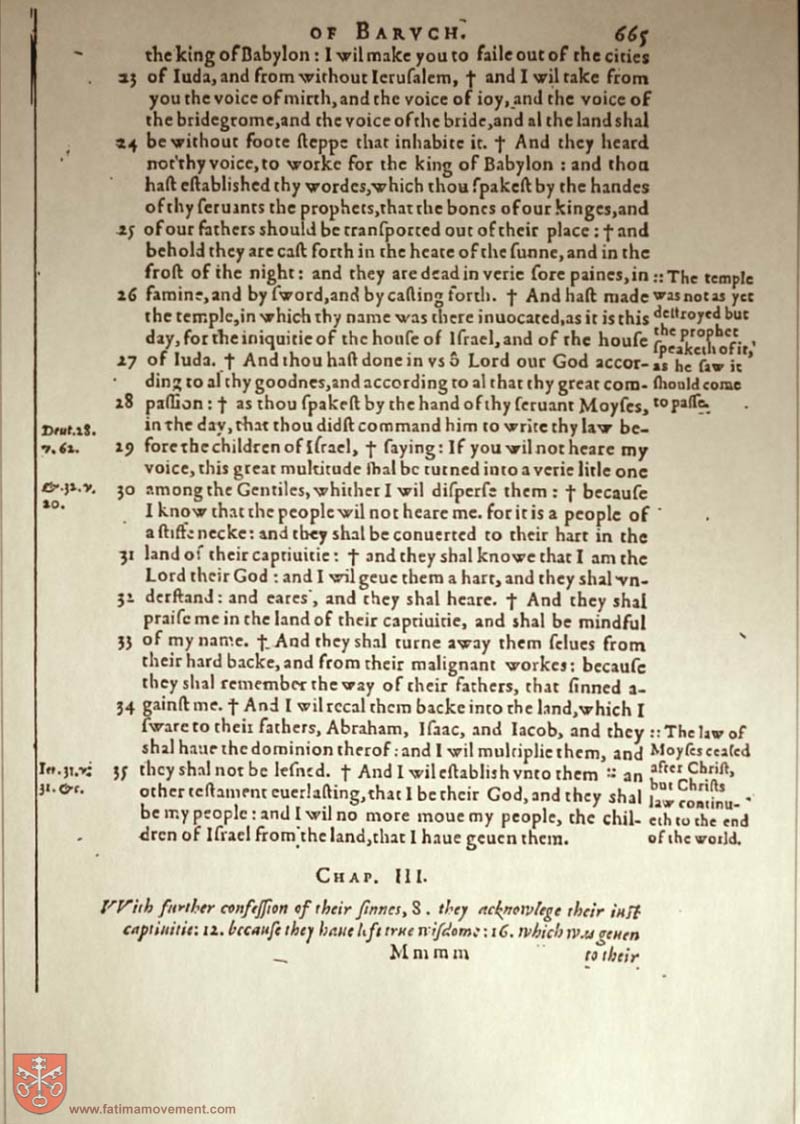 OF BARVCH. 665
the king of Babylon : I wil make you to faile out of the cities
23 of Iuda, and from without Ieruſalem, † and I wil take from
you the voice of mirth, and the voice of ioy, and the voice of
the bridegrome, and the voice of the bride, and al the land shal
24 be without foote ſteppe that inhabite it. † And they heard
not thy voice, to worke for the king of Babylon : and thou
haſt eſtabliſhed thy wordes, which thou ſpakeſt by the handes
of thy ſeruants the prophets, that the bones of our kinges, and
25 of our fathers should be tranſported out of their place : † and
behold they are caſt forth in the heate of the ſunne, and in the
froſt of the night : and they are dead in verie ſore paines, in
26 famine, and by ſword, and by caſting forth. † And haſt made
the temple, in which thy name was there inuocated, as it is this
day, for the iniquitie of the houſe of Iſrael, and of the houſe
27 of Iuda. † And thou haſt done in vs ô Lord our God accor-
ding to al thy goodnes, and according to al that thy great com-
28 paſſion : † as thou ſpakeſt by the hand of thy ſeruant Moyſes,
in the day, that thou didſt command him to write thy law be-
29 fore the children of Iſrael, † ſaying : If you wil not heare my
voice, this great multitude ſhal be turned into a verie litle one
30 among the Gentiles, whither I wil diſperſe them : † becauſe
I know that the people wil not heare me. for it is a people of
a ſtiffe necke : and they shal be conuerted to their hart in the
31 land of their captiuitie : † and they shal knowe that I am the
Lord their God : and I wil geue them a hart, and they shal vn-
32 derſtand : and eares, and they shal heare. † And they shal
praiſe me in the land of their captiuitie, and shal be mindful
33 of my name. † And they shal turne away them ſelues from
their hard backe, and from their malignant workes : becauſe
they shal remember the way of their fathers, that ſinned a-
34 gainſt me. † And I wil recal them backe into the land, which I
ſware to their fathers, Abraham, Iſaac, and Iacob, and they
shal haue the dominion therof : and I wil multiplie them, and
35 they shal not be leſned. † And I wil eſtabliſh vnto them :: an
other teſtament euerlaſting, that I be their God, and they shal
be my people : and I wil no more moue my people, the chil-
dren of Iſrael from the land, that I haue geuen them.
:: The temple
was not as yet
deſtroyed but
the prophet
ſpeaketh of it,
as he ſaw it
ſhould come
to paſſe.
Deut. 28.
v. 62.
&. 31. v.
20.
:: The law of
Moyſes ceaſed
after Chriſt,
but Chriſts
law continu-
eth to the end
of the world.
Ier. 31. v.
31. &c.
CHAP. III.
VVith further confeſſion of their ſinnes, 8. they acknowlege their iuſt
captiuitie: 12. becauſe they haue left true wiſdome : 16. which was geuen
Mmmm to their
www.fatimamovement.com